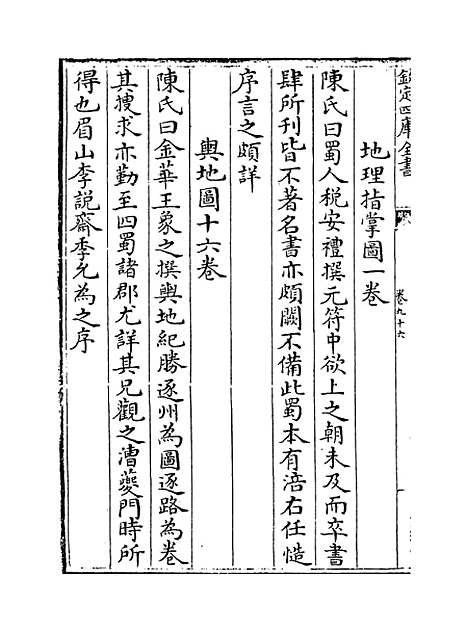 欽定四庫全書
卷九十六
地理指掌圖一卷
陳氏曰蜀人稅安禮撰元符中欲上之朝未及而卒書
肆所刊皆不著名書亦頗闕不備此蜀本有涪右任慥
序言之頗詳
輿地圖十六卷
陳氏曰金華王象之撰輿地紀勝逐州為圖逐路為卷
其搜求亦勤至四蜀諸郡尤詳其兄觀之漕夔門時所
得也眉山李說齋季允為之序